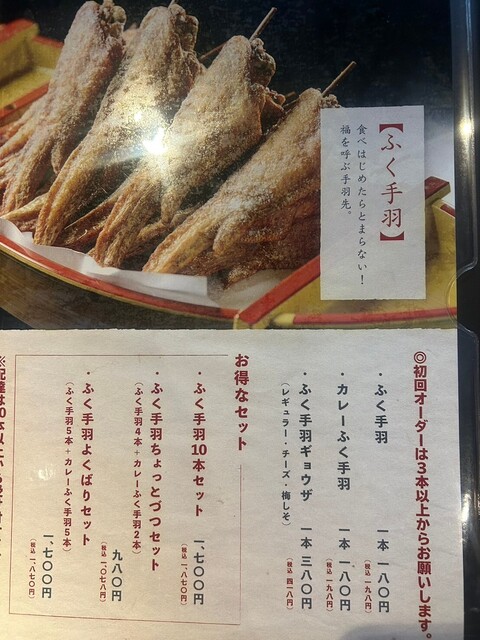 【ふく手羽】
食べはじめたらとまらない！
福を呼ぶ手羽先。
◎初回オーダーは3本以上からお願いします。
・ふく手羽 一本 一八〇円
（税込 一九八円）
・カレーふく手羽 一本 一八〇円
（税込 一九八円）
・ふく手羽ギョウザ 一本 三八〇円
（レギュラー・チーズ・梅しそ）
（税込 四一八円）
お得なセット
・ふく手羽10本セット 一、七〇〇円
（税込 一、八七〇円）
・ふく手羽ちょっとづつセット
（ふく手羽4本＋カレーふく手羽2本）
九八〇円
（税込 一、〇七八円）
・ふく手羽よくばりセット
（ふく手羽5本＋カレーふく手羽5本）
一、七〇〇円
（税込 一、八七〇円）